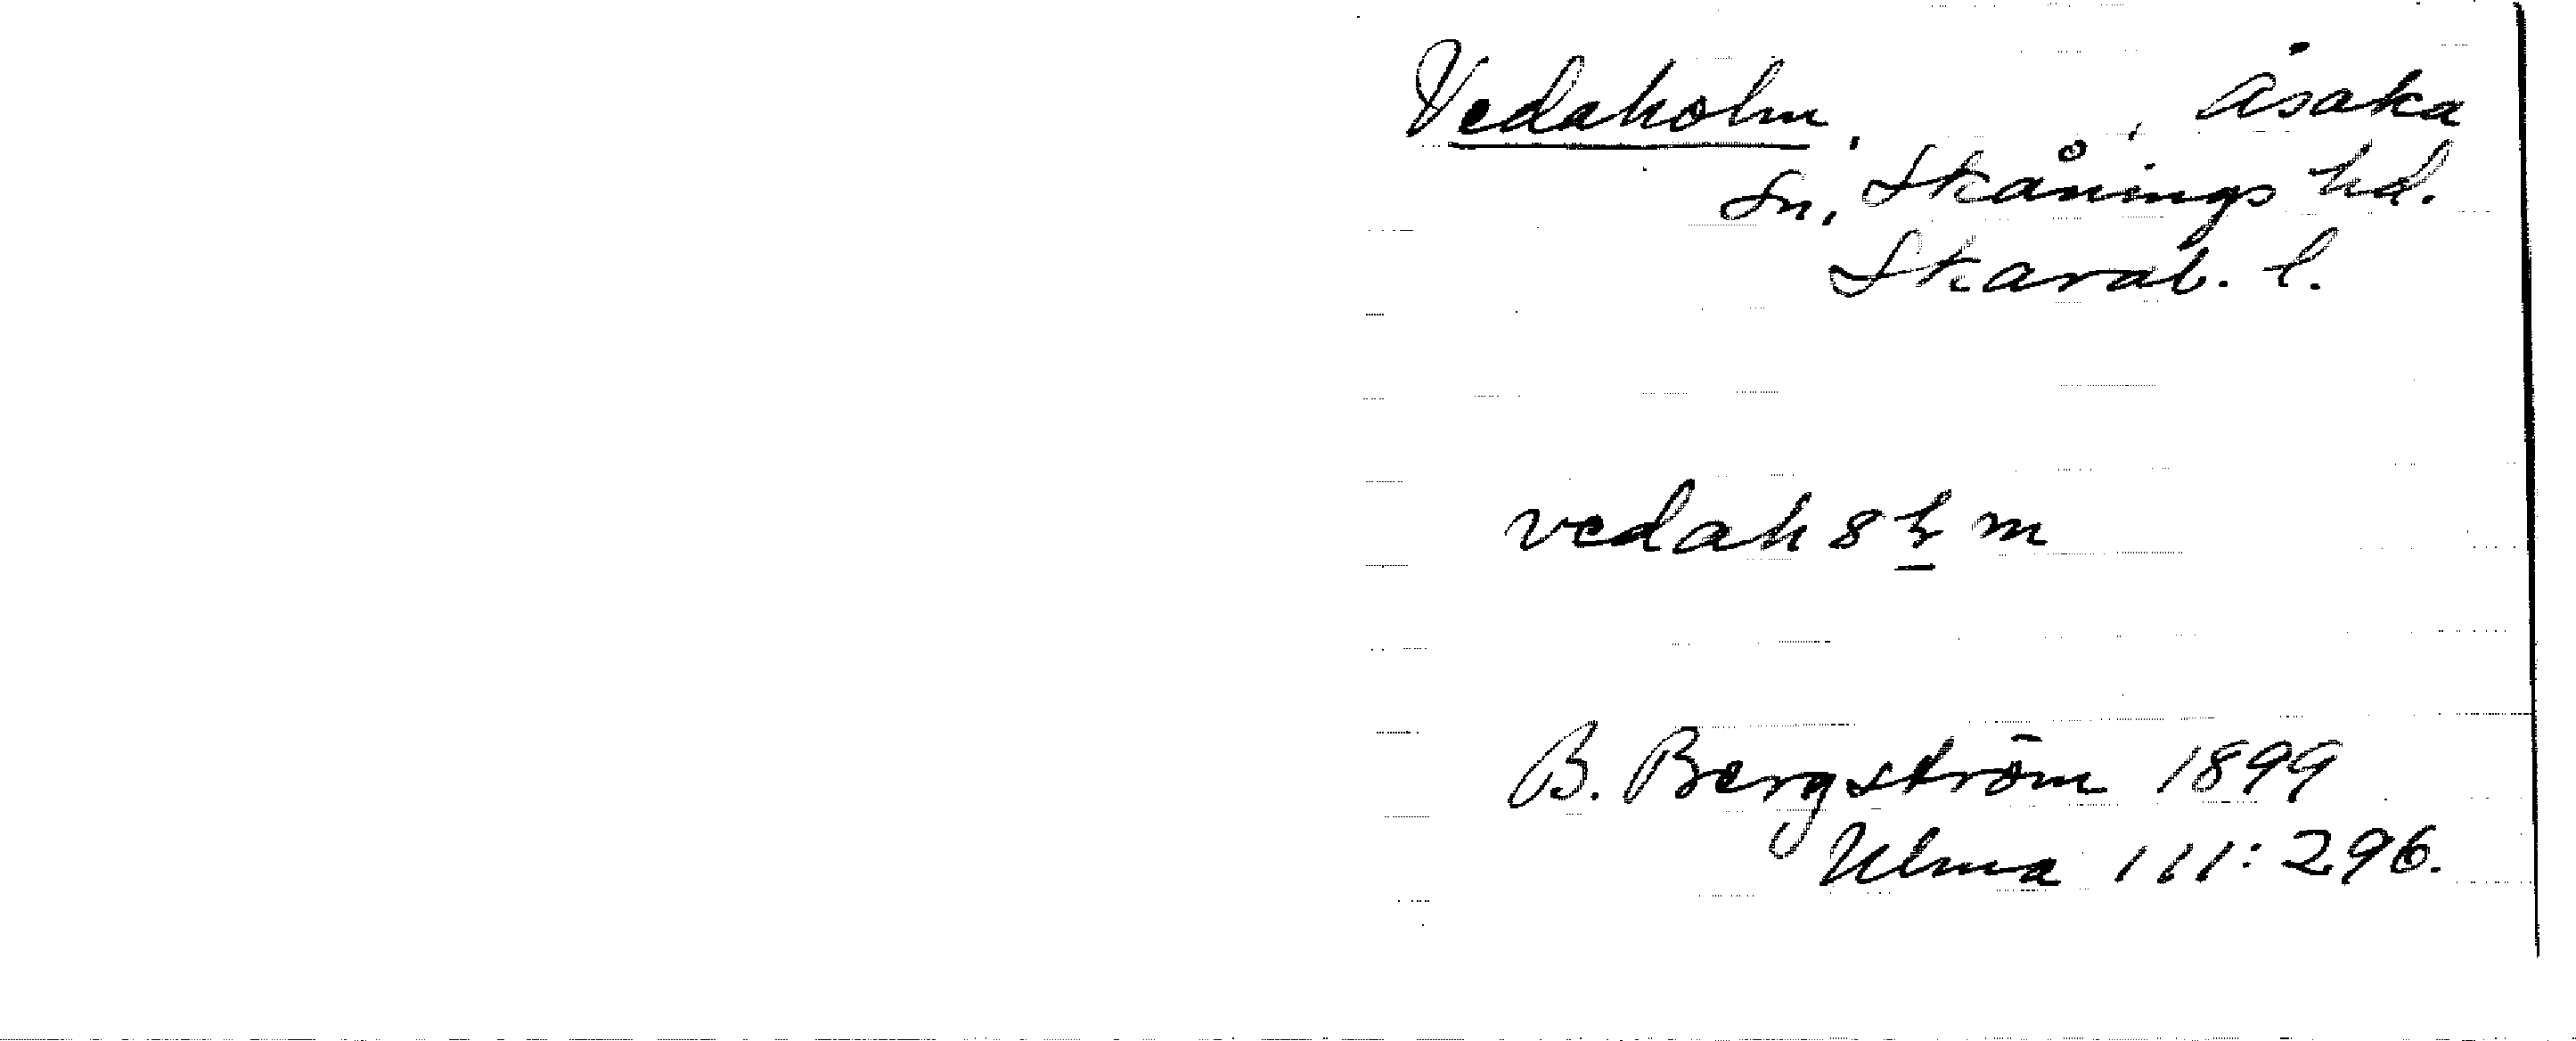 Vedaholm, , Åsaka
Sn, Skånings hd.
Skarab. l.
vedah8ꜧm
B. Bergström 1899
Ulma 111:296.